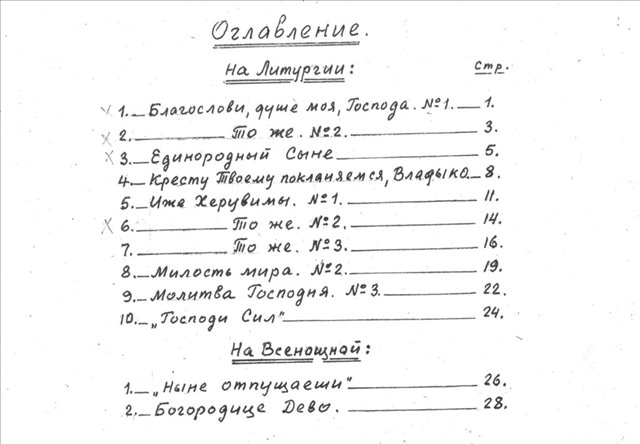 Оглавление.
На Литургии: Стр.
1. Благослови, душе моя, Господа. №1. 1.
2. То же. №2. 3.
3. Единородный Сыне 5.
4. Кресту Твоему покланяемся, Владыко. 8.
5. Иже Херувимы. №1. 11.
6. То же. №2. 14.
7. То же. №3. 16.
8. Милость мира. №2. 19.
9. Молитва Господня. №3. 22.
10. „Господи Сил" 24.
На Всенощной:
1. „Ныне отпущаеши" 26.
2. Богородице Дево. 28.